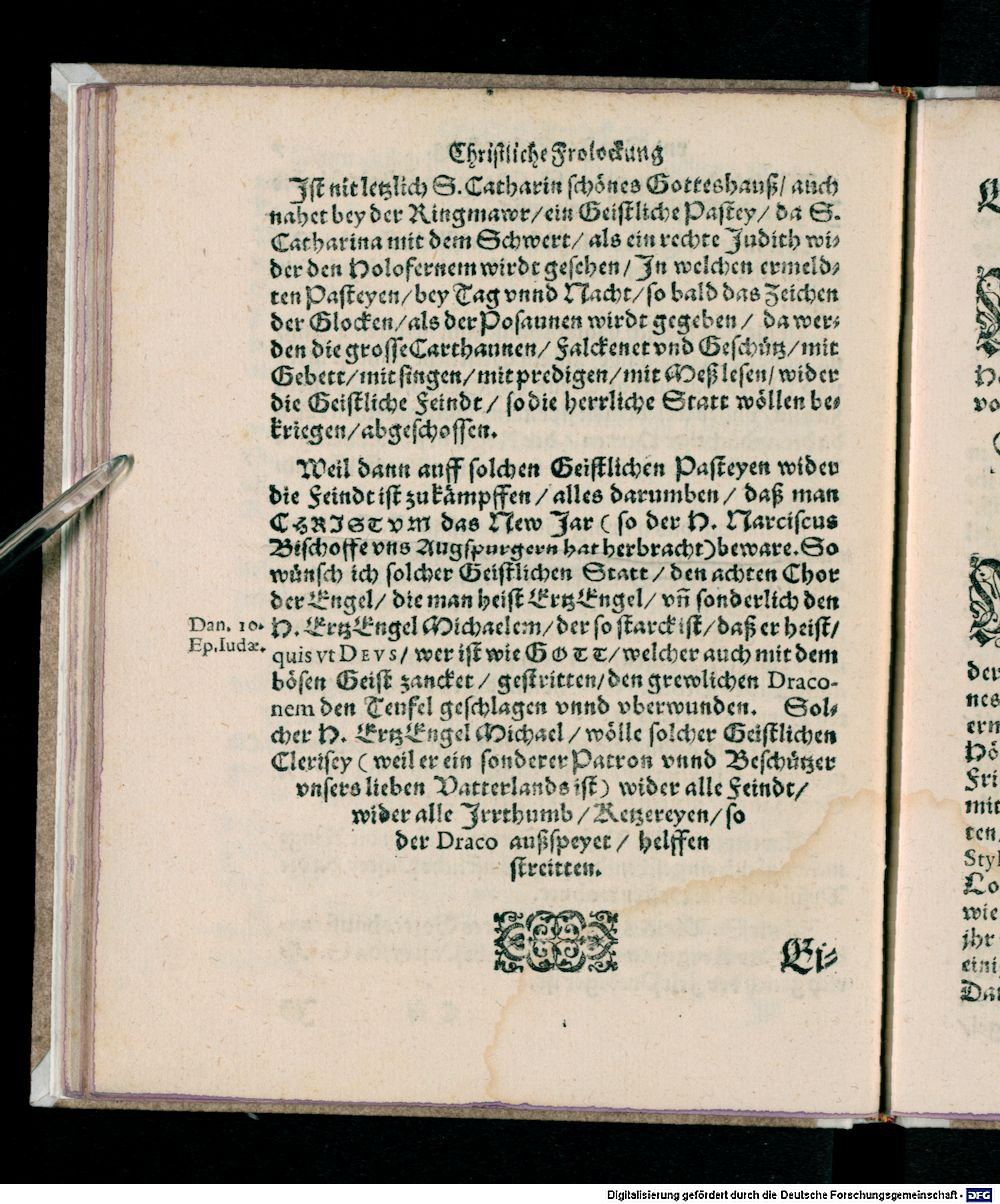 Christliche Frolockung
Ist nit letzlich S. Catharin schönes Gotteshauß/ auch
nahet bey der Ringmawr/ein Geistliche Pastey/ da S.
Catharina mit dem Schwert/ als ein rechte Judith wi-
der den Holofernem wirdt gesehen/ In welchen ermeld-
ten Pasteyen/bey Tag vnnd Nacht/so bald das Zeichen
der Glocken/als der Posaunen wirdt gegeben/ da wer-
den die grosse Carthaunen/ Falckenet vnd Geschütz/mit
Gebett/mit singen/mit predigen/mit Meß lesen/wider
die Geistliche Feindt/ so die herrliche Statt wöllen be-
kriegen/abgeschossen.
Weil dann auff solchen Geistlichen Pasteyen wider
die Feindt ist zu kämpffen/alles darumben/ daß man
CHRISTVM das New Jar (so der H. Narciscus
Bischoffe vns Augspurgern hat herbracht)beware. So
wünsch ich solcher Geistlichen Statt/den achten Chor
der Engel/ die man heist ErtzEngel/ vñ sonderlich den
Dan. 10.
Ep. Iudæ.
H. ErtzEngel Michaelem/der so starck ist/daß er heist/
quis vt DEVS/ wer ist wie GOTT/welcher auch mit dem
bösen Geist zancket/ gestritten/den grewlichen Draco-
nem den Teufel geschlagen vnnd vberwunden. Sol-
cher H. ErtzEngel Michael/wölle solcher Geistlichen
Clerisey (weil er ein sonderer Patron vnnd Beschützer
vnsers lieben Vatterlands ist) wider alle Feindt/
wider alle Irrthumb/Ketzereyen/so
der Draco außspeyet/ helffen
streitten.
Ei-
der
nes
ern
Hö
Fri
mit
ten
Styl
Lo
wie
ihr
eini
Dar
Digitalisierung gefördert durch die Deutsche Forschungsgemeinschaft - DFG